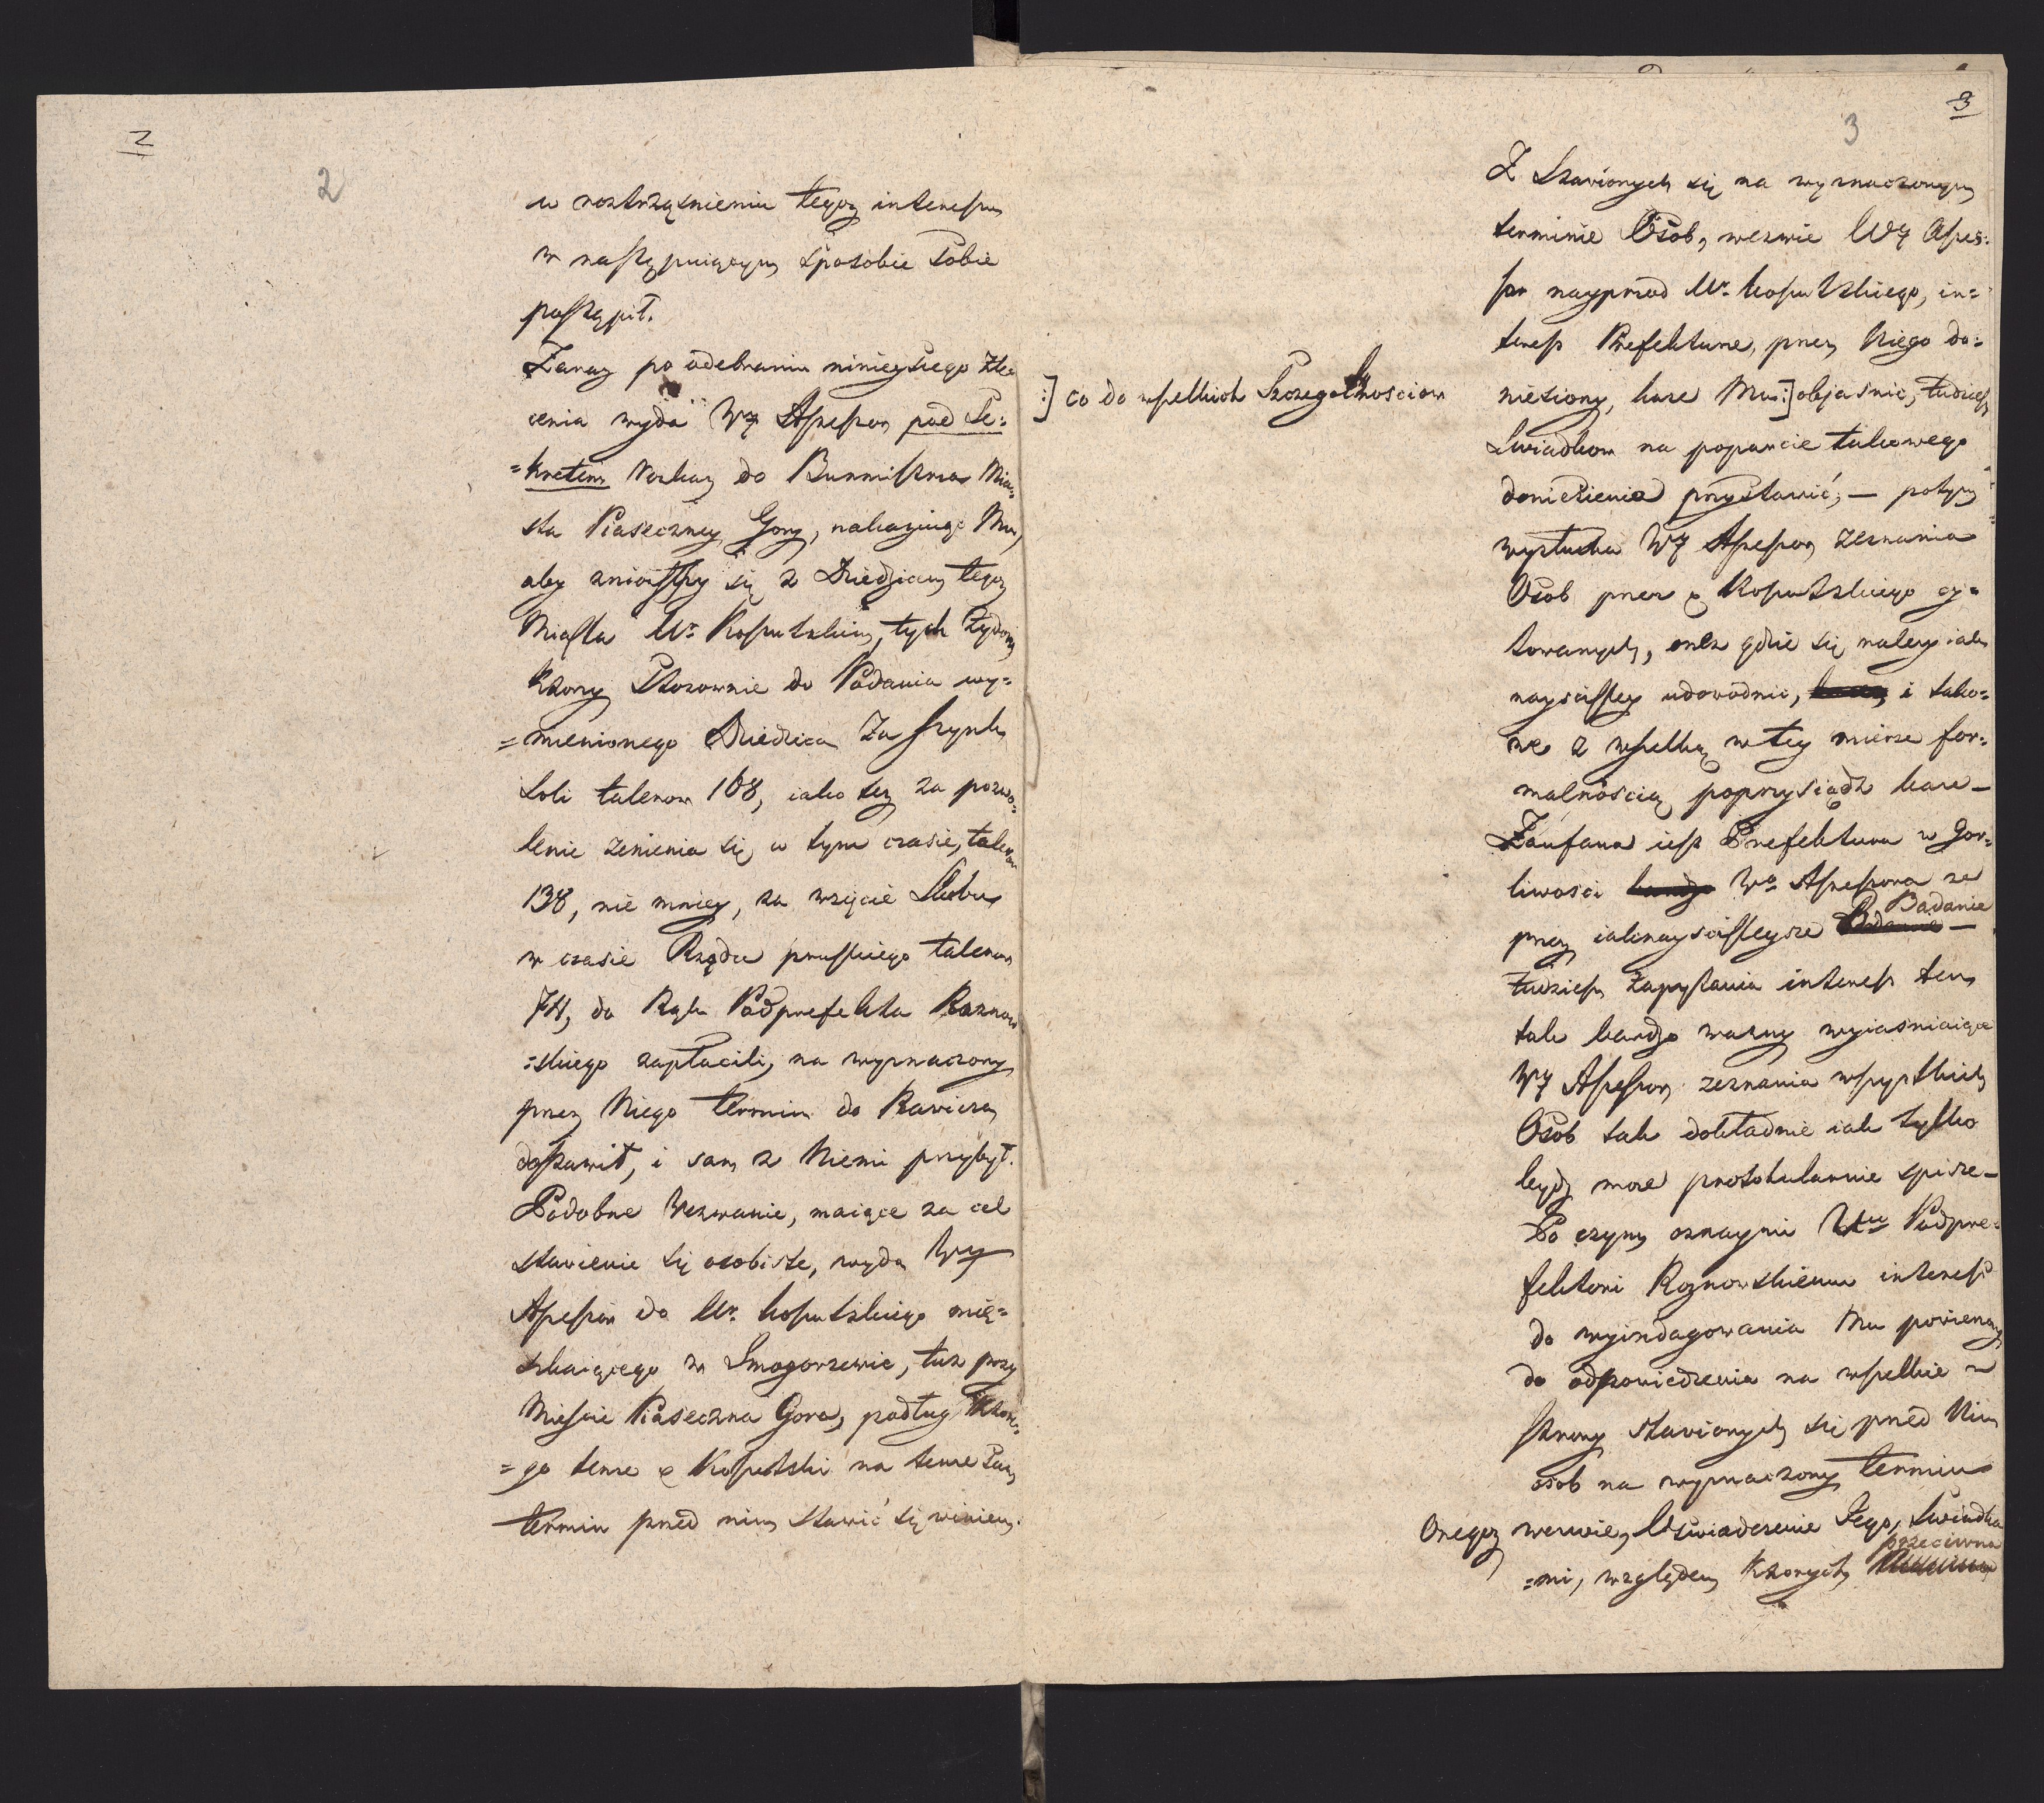 2
2
w roztrząśnieniu tegoż interessu
w następuiącym sposobie sobie
postąpił.
Zaraz po odebraniu ninieyszego zle
cenia wyda WJ Assessor pod Se=
=kretem Rozkaz do Burmistrza Mia=
sta Piaseczney Gory, nakazuiąc Mu,
aby zniosłszy się z Dziedzicem tegoż
Miasta Ur. Koszutskim, tych Żydow,
ktorzy stosownie do Podania wy=
=mienionego Dziedzica za szynk
soli talerow 168, iako też za pozwo=
lenie żenienia się w tym czasie, talerow
138, nie mniey, za wzięcie Slubu
w czasie Rządu pruskiego talerow
74, do Rąk Podprefekta Roznow
=skiego zapłacili, na wyznaczony
przez Niego termin do Rawicza
dostawił, i sam z Niemi przybył.
Podobne Wezwanie, maiące za cel
stawienie się osobiste, wyda WJ
Assessor do Ur. Koszutskiego mie=
szkaiącego w Smogorzewie, tuż przy
Mieście Piaseczna Gora, podług ktore=
=go tenże Koszutski na tenże sam
termin przed nim stawić się winien.
3
3
Z stawionych się na wyznaczonym
terminie Osob, wezwie WJ Asses=
sor nayprzod Ur. Koszutskiego, in=
teress Prefekturze, przez Niego do=
:] co do wszelkich Szczegolnosciow
niesiony, każe Mu :] objasnic, tudzież
Swiadkow na poparcie takowego
doniesienia przystawić; — potym
wysłucha WJ Assessor zeznania
Osob przez Koszutskiego cy=
towanych, one gdzie się należy iak
nayscisley udowodnić, i tako=
we z wszelką w tey mierze for=
malnością poprzysiądz każe —
Zaufana iest Prefektura w Gor=
liwosci Wo Assessora że
Badanie
przez iaknayscisleysze —
tudzież Zapytania interess ten
tak bardzo ważny wyiasniaiące
WJ Assessor zeznania wszystkich
Osob tak dokładnie iak tylko
bydz może protokularnie spisze —
Po czym oznaymi Podpre=
fektowi Roznowskiemu interess
do wyindagowania Mu powierzony
do odpowiedzenia na wszelkie z
strony stawionych się przed Nim
osob na wyznaczony termin
Onegoż wezwie, Uświadczenie Jego, Swiadka
przeciwna
=mi, względem ktorych